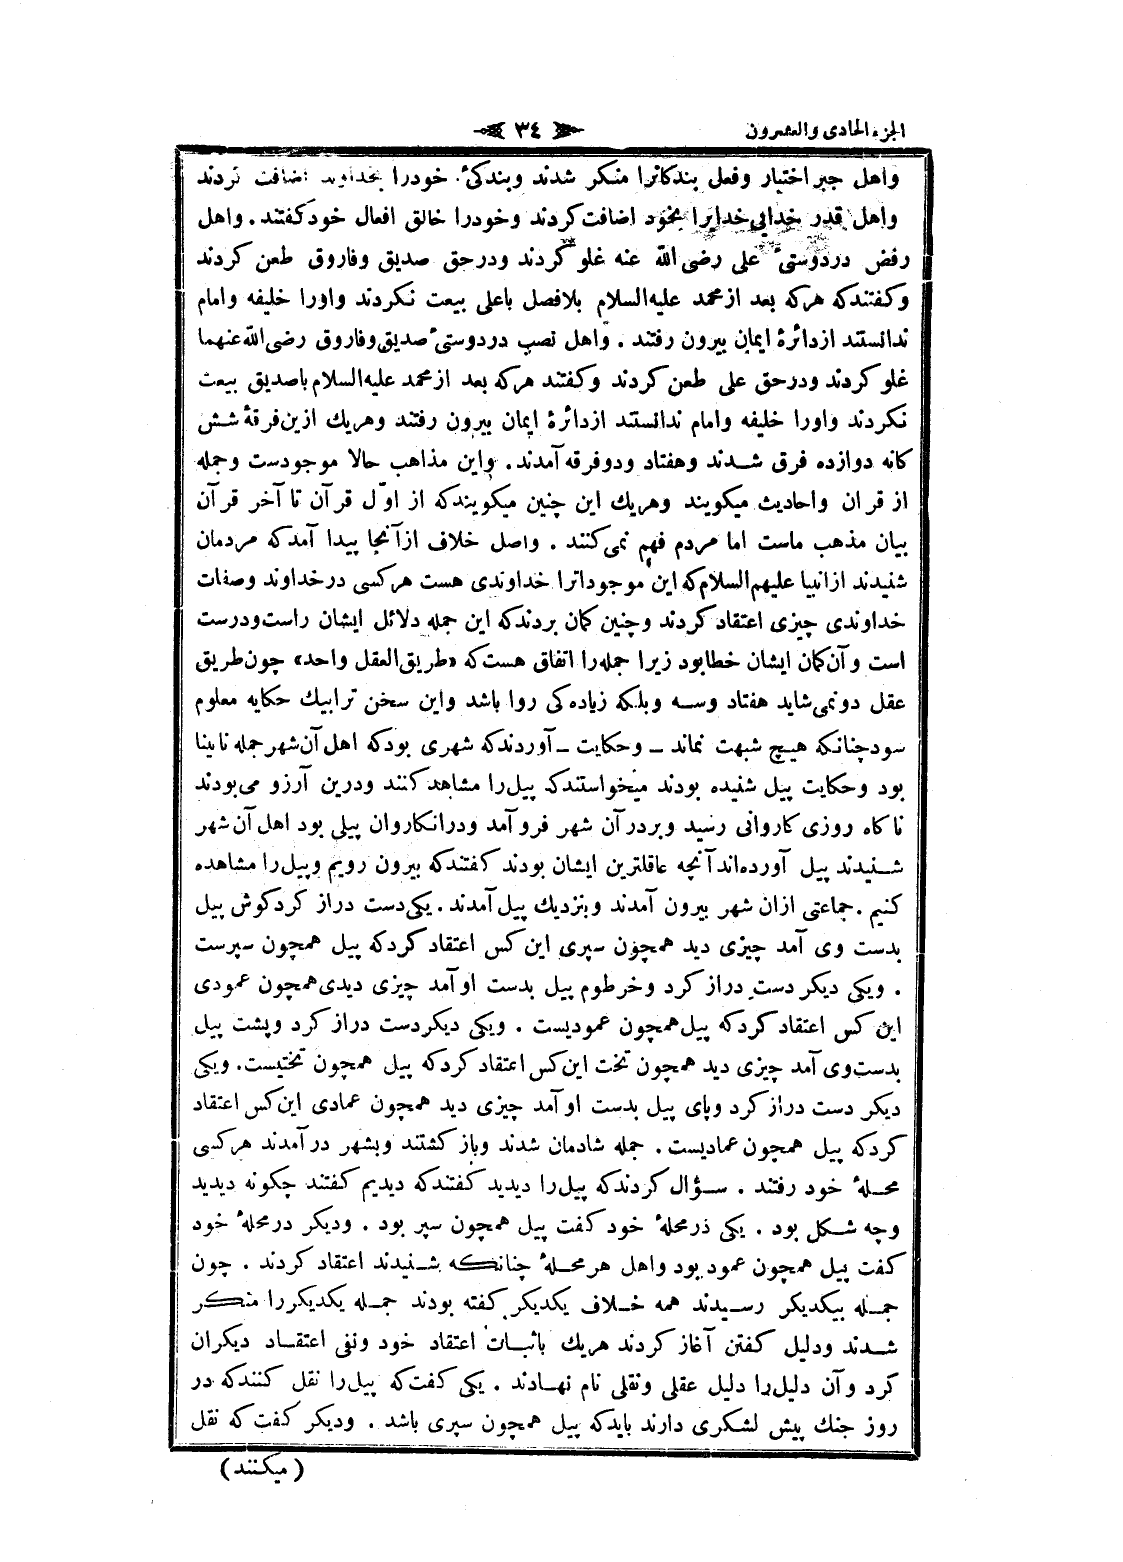 الجزء الحادى والعشرون
٣٤
واهل جبر اختيار وفعل بندكانرا منكر شدند وبندكئ خودرا بخداوند اضافت كردند
واهل قدر خدايى خدايرا بخود اضافت كردند وخودرا خالق افعال خود كفتند . واهل
رفض دردوستىٔ على رضى الله عنه غلو كردند ودرحق صديق وفاروق طعن كردند
وكفتند كه هركه بعد ازمحمد عليه‌السلام بلافصل باعلى بيعت نكردند واورا خليفه وامام
ندانستند ازدائرهٔ ايمان بيرون رفتند . واهل نصب دردوستىٔ صديق وفاروق رضى الله عنهما
غلو كردند ودرحق على طعن كردند وكفتند هركه بعد ازمحمد عليه‌السلام باصديق بيعت
نكردند واورا خليفه وامام ندانستند ازدائرهٔ ايمان بيرون رفتند وهريك ازين فرقهٔ شش
كانه دوازده فرق شدند وهفتاد ودوفرقه آمدند . واين مذاهب حالا موجودست وجمله
از قرآن واحاديث ميكويند وهريك اين چنين ميكويند كه از اوّل قرآن تا آخر قرآن
بيان مذهب ماست اما مردم فهم نمى‌كنند . واصل خلاف ازآنجا پيدا آمدكه مردمان
شنيدند ازانبيا عليهم السلام كه اين موجوداترا خداوندى هست هركسى درخداوند وصفات
خداوندى چيزى اعتقاد كردند وچنين كمان بردندكه اين جمله دلائل ايشان راست ودرست
است وآن كمان ايشان خطابود زيرا جمله را اتفاق هست كه «طريق العقل واحد» چون طريق
عقل دونمى‌شايد هفتاد وسه وبلكه زياده كى روا باشد واين سخن ترابيك حكايه معلوم
سودچنانكه هيچ شبهت نماند ــ وحكايت ــ آوردندكه شهرى بودكه اهل آن شهر جمله نابينا
بود وحكايت پيل شنيده بودند ميخواستندكه پيل را مشاهد كنند ودرين آرزو مى‌بودند
ناكاه روزى كاروانى رسيد وبردرآن شهر فروآمد ودرانكاروان پيلى بود اهل آن شهر
شنيدند پيل آورده‌اند آنچه عاقلترين ايشان بودند كفتندكه بيرون رويم وپيل را مشاهده
كنيم . جماعتى ازان شهر بيرون آمدند وبنزديك پيل آمدند . يكى دست دراز كرد كوش پيل
بدست وى آمد چيزى ديد همچون سپرى اين كس اعتقاد كردكه پيل همچون سپرست
. ويكى ديكر دست دراز كرد وخرطوم پيل بدست او آمد چيزى ديدى همچون عمودى
اين كس اعتقاد كردكه پيل همچون عموديست . ويكى ديكردست دراز كرد وپشت پيل
بدست وى آمد چيزى ديد همچون تخت اين كس اعتقاد كردكه پيل همچون تختيست . ويكى
ديكر دست دراز كرد وپاى پيل بدست او آمد چيزى ديد همچون عمادى اين كس اعتقاد
كردكه پيل همچون عماديست . جمله شادمان شدند وباز كشتند وبشهر درآمدند هركسى
محلهٔ خود رفتند . سؤال كردندكه پيل را ديديد كفتندكه ديديم كفتند چكونه ديديد
وچه شكل بود . يكى درمحلهٔ خود كفت پيل همچون سپر بود . وديكر درمحلهٔ خود
كفت پيل همچون عمود بود واهل هرمحلهٔ چنانكه شنيدند اعتقاد كردند . چون
جمله بيكديكر رسيدند همه خلاف يكديكر كفته بودند جمله يكديكررا منكر
شدند ودليل كفتن آغاز كردند هريك باثبات اعتقاد خود ونفى اعتقاد ديكران
كرد وآن دليل را دليل عقلى ونقلى نام نهادند . يكى كفت كه پيل را نقل كنندكه در
روز جنك پيش لشكرى دارند بايدكه پيل همچون سپرى باشد . وديكر كفت كه نقل
(ميكنند)